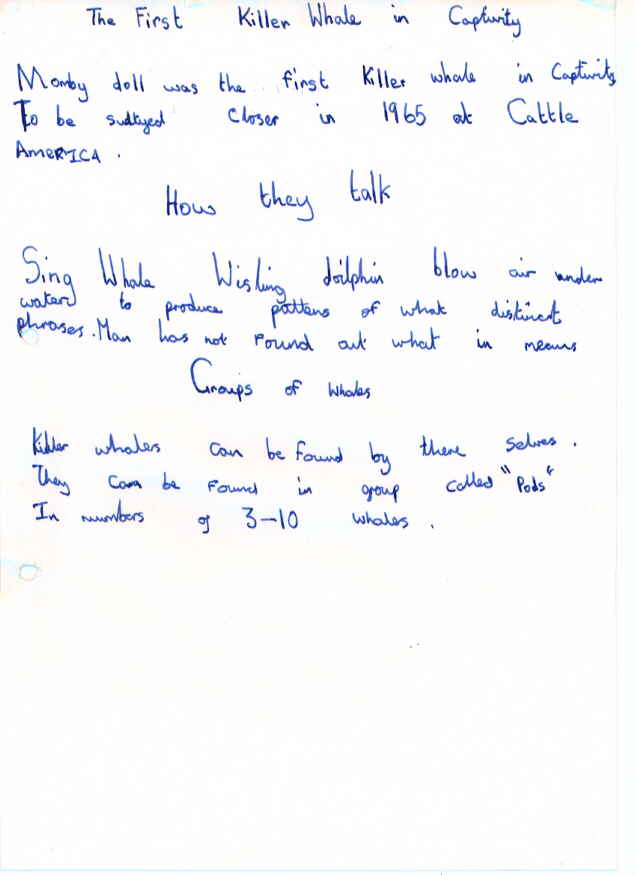 The First Killer Whale in Captivity
Momby doll was the first Killer whale in Captivity
To be sudtyed closer in 1965 at Cattle
AMERICA.
How they talk
Sing Whale Wisling doilphin blow air under
water to produce pattens of what distinct
phrases. Man has not Found out what in means
Groups of Whales
Killer whales can be found by there selves.
They can be Found in group called "Pods"
In numbers of 3-10 whales.